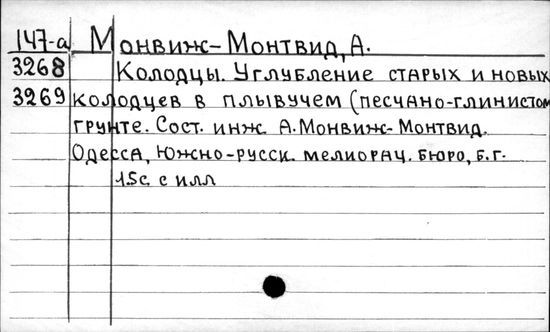 147-а Монвиж-Монтвид, А.
3268 Колодцы. Углубление старых и новых
3269 колодцев в плывучем (песчано-глинистом
грунте. Сост. инж. А. Монвиж-Монтвид.
Одесса, Южно-русск. мелиорац. бюро, б.г.
15с. с илл